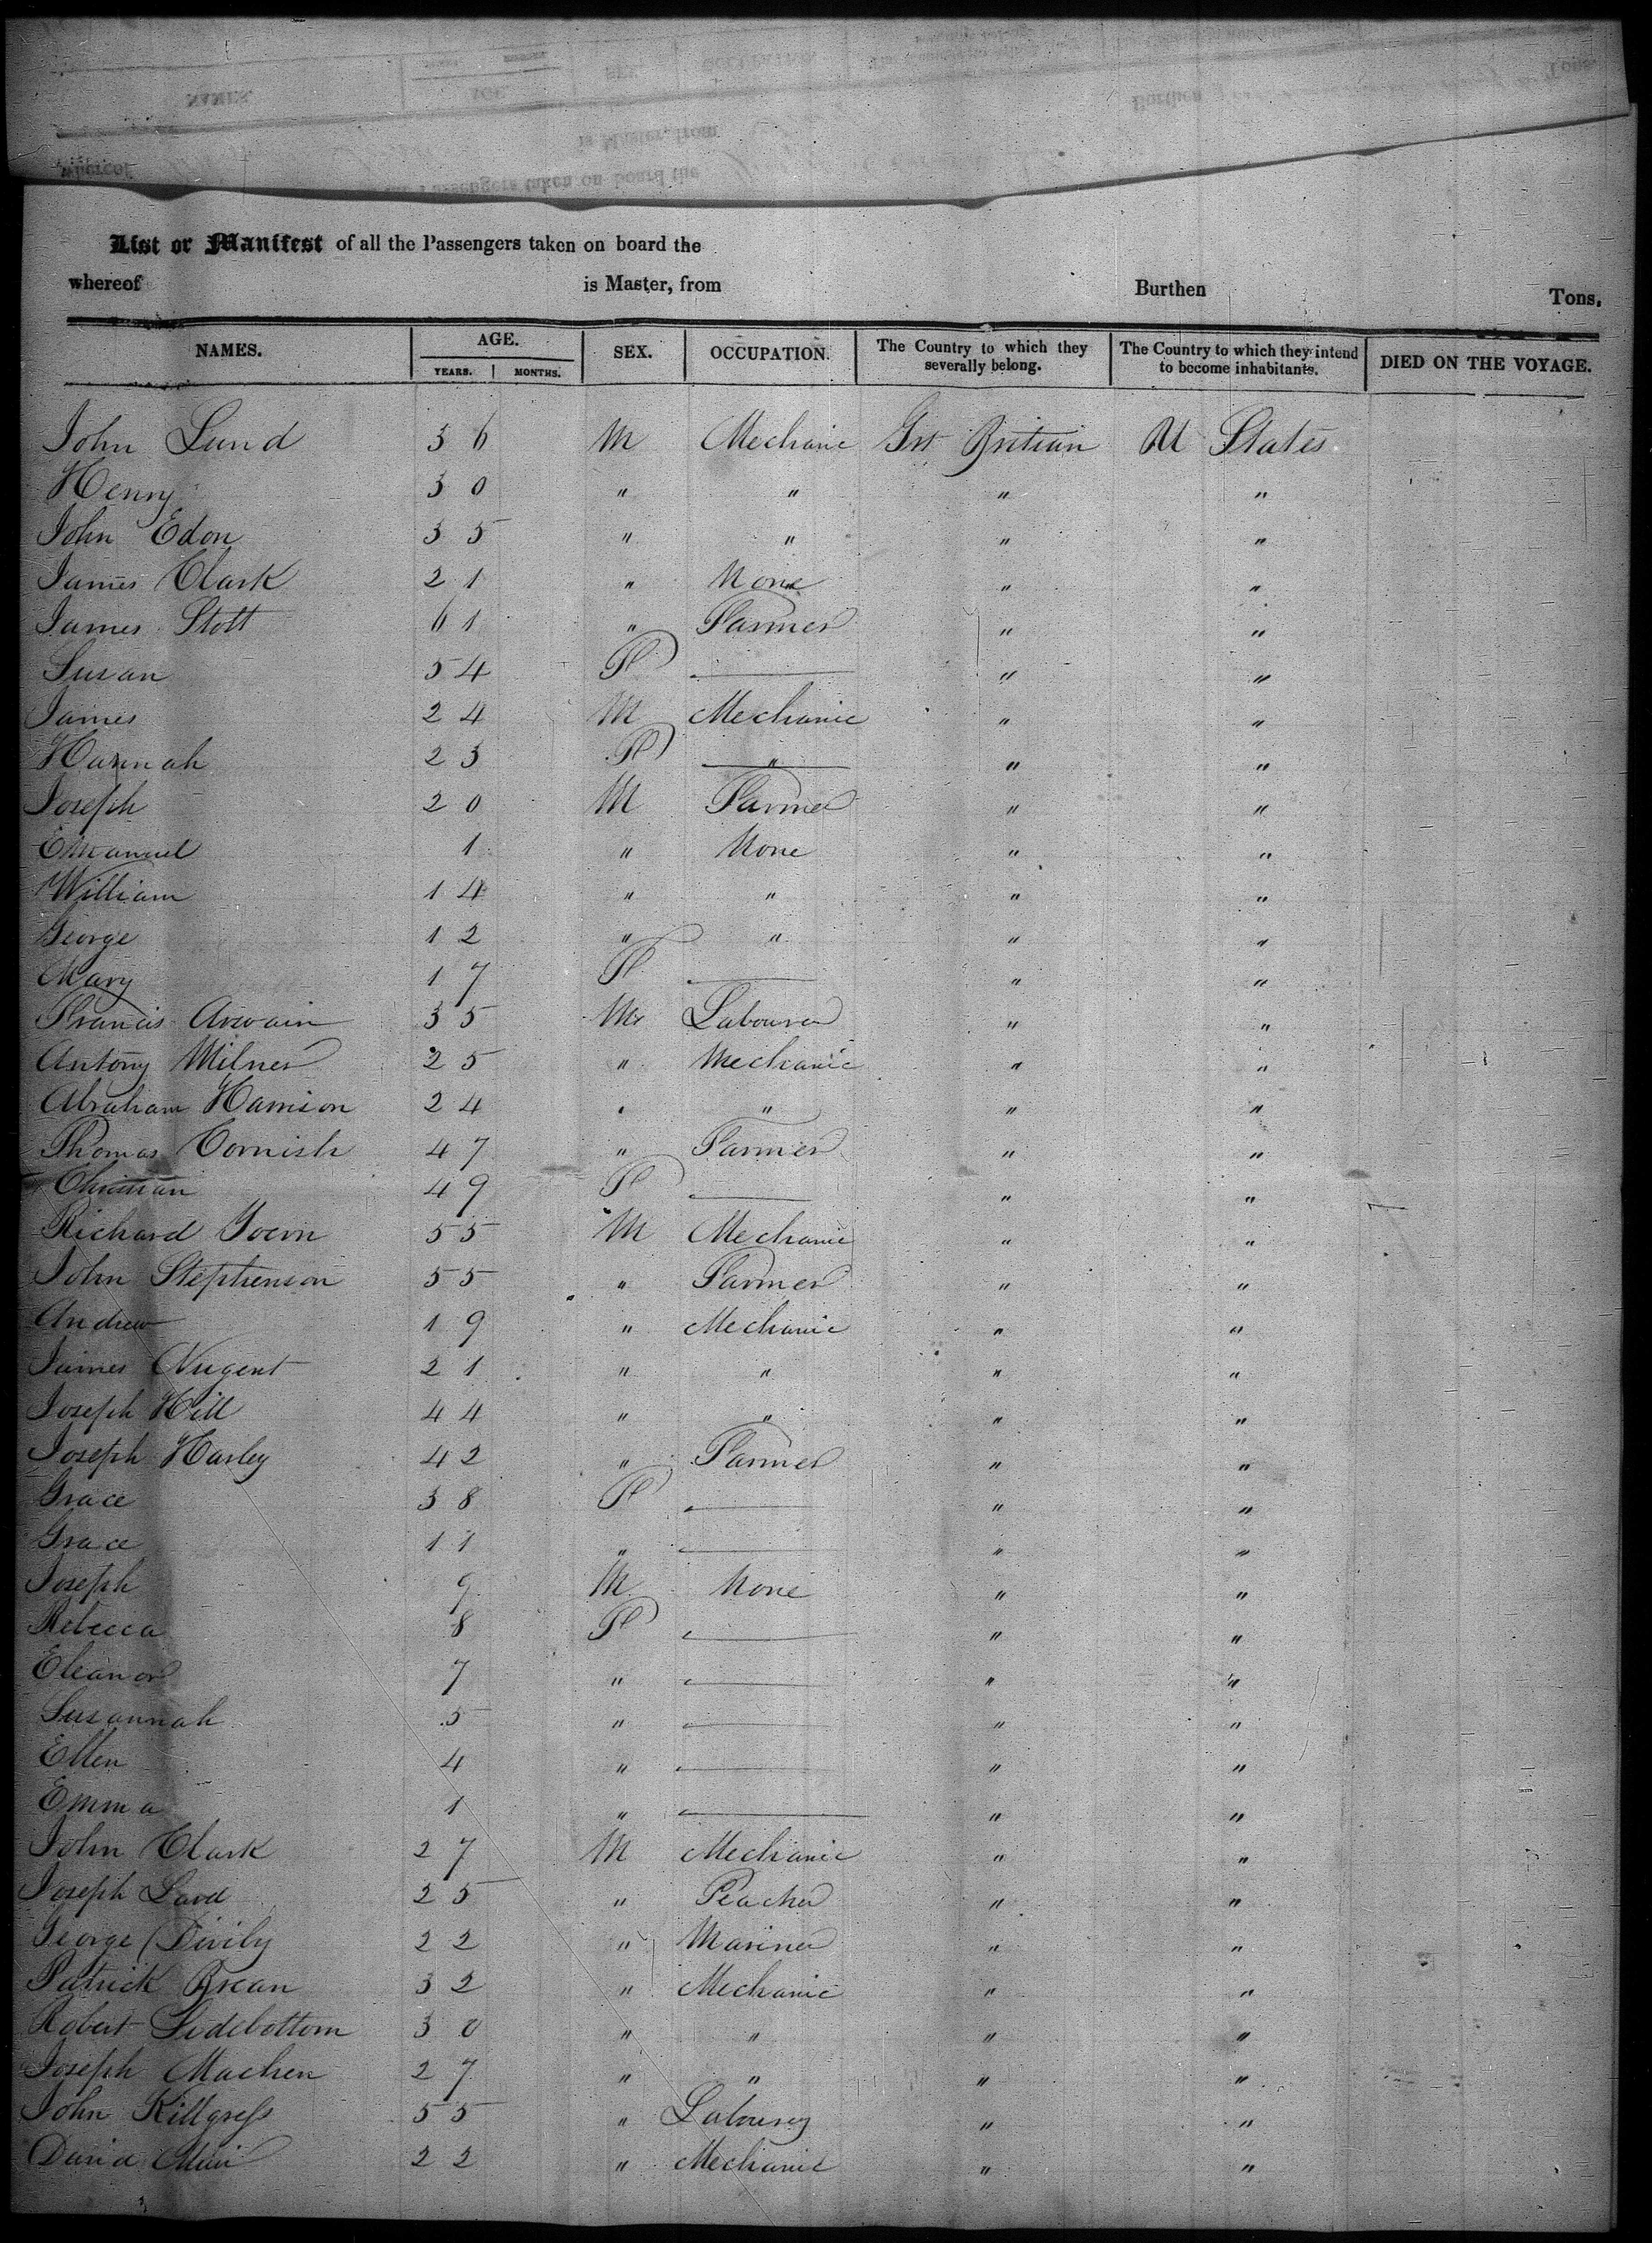 List or Manifest of all the Passengers taken on board the
whereof is Master, from Burthen Tons.
NAMES. AGE. SEX. OCCUPATION. The Country to which they severally belong. The Country to which they intend to become inhabitants. DIED ON THE VOYAGE.
YEARS. MONTHS.
John Lund 36 M Mechanic Grt Britian U States.
Henry 30 " " " "
John Edon 35 " " " "
James Clark 21 " None " "
James Stott 61 " Farmer " "
Susan 54 F — " "
James 24 M Mechanic " "
Hannah 23 F " " "
Joseph 20 M Farmer " "
Emanuel 1 " None " "
William 14 " " " "
George 12 " " " "
Mary 17 F — " "
Francis 35 M Labourer " "
Antony Milner 25 " Mechanic " "
Abraham Harrison 24 " " " "
Thomas Cornish 47 " Farmer " "
Christian 49 F — " "
Richard 55 M Mechanic " "
John Stephenson 55 " Farmer " "
Andrew 19 " Mechanic " "
James Nugent 21 " " " "
Joseph Hill 44 " " " "
Joseph Harley 42 " Farmer " "
Grace 38 F — " "
Grace 11 " — " "
Joseph 9 M None " "
Rebecca 8 F — " "
Eleanor 7 " — " "
Susannah 5 " — " "
Ellen 4 " — " "
Emma 1 " — " "
John Clark 27 M Mechanic " "
Joseph 25 " Teacher " "
George 22 " Mariner " "
Patrick Brean 32 " Mechanic " "
Robert Sidebottom 30 " " " "
Joseph Machen 27 " " " "
John Killgress 55 " Labourer " "
David 22 " Mechanic " "